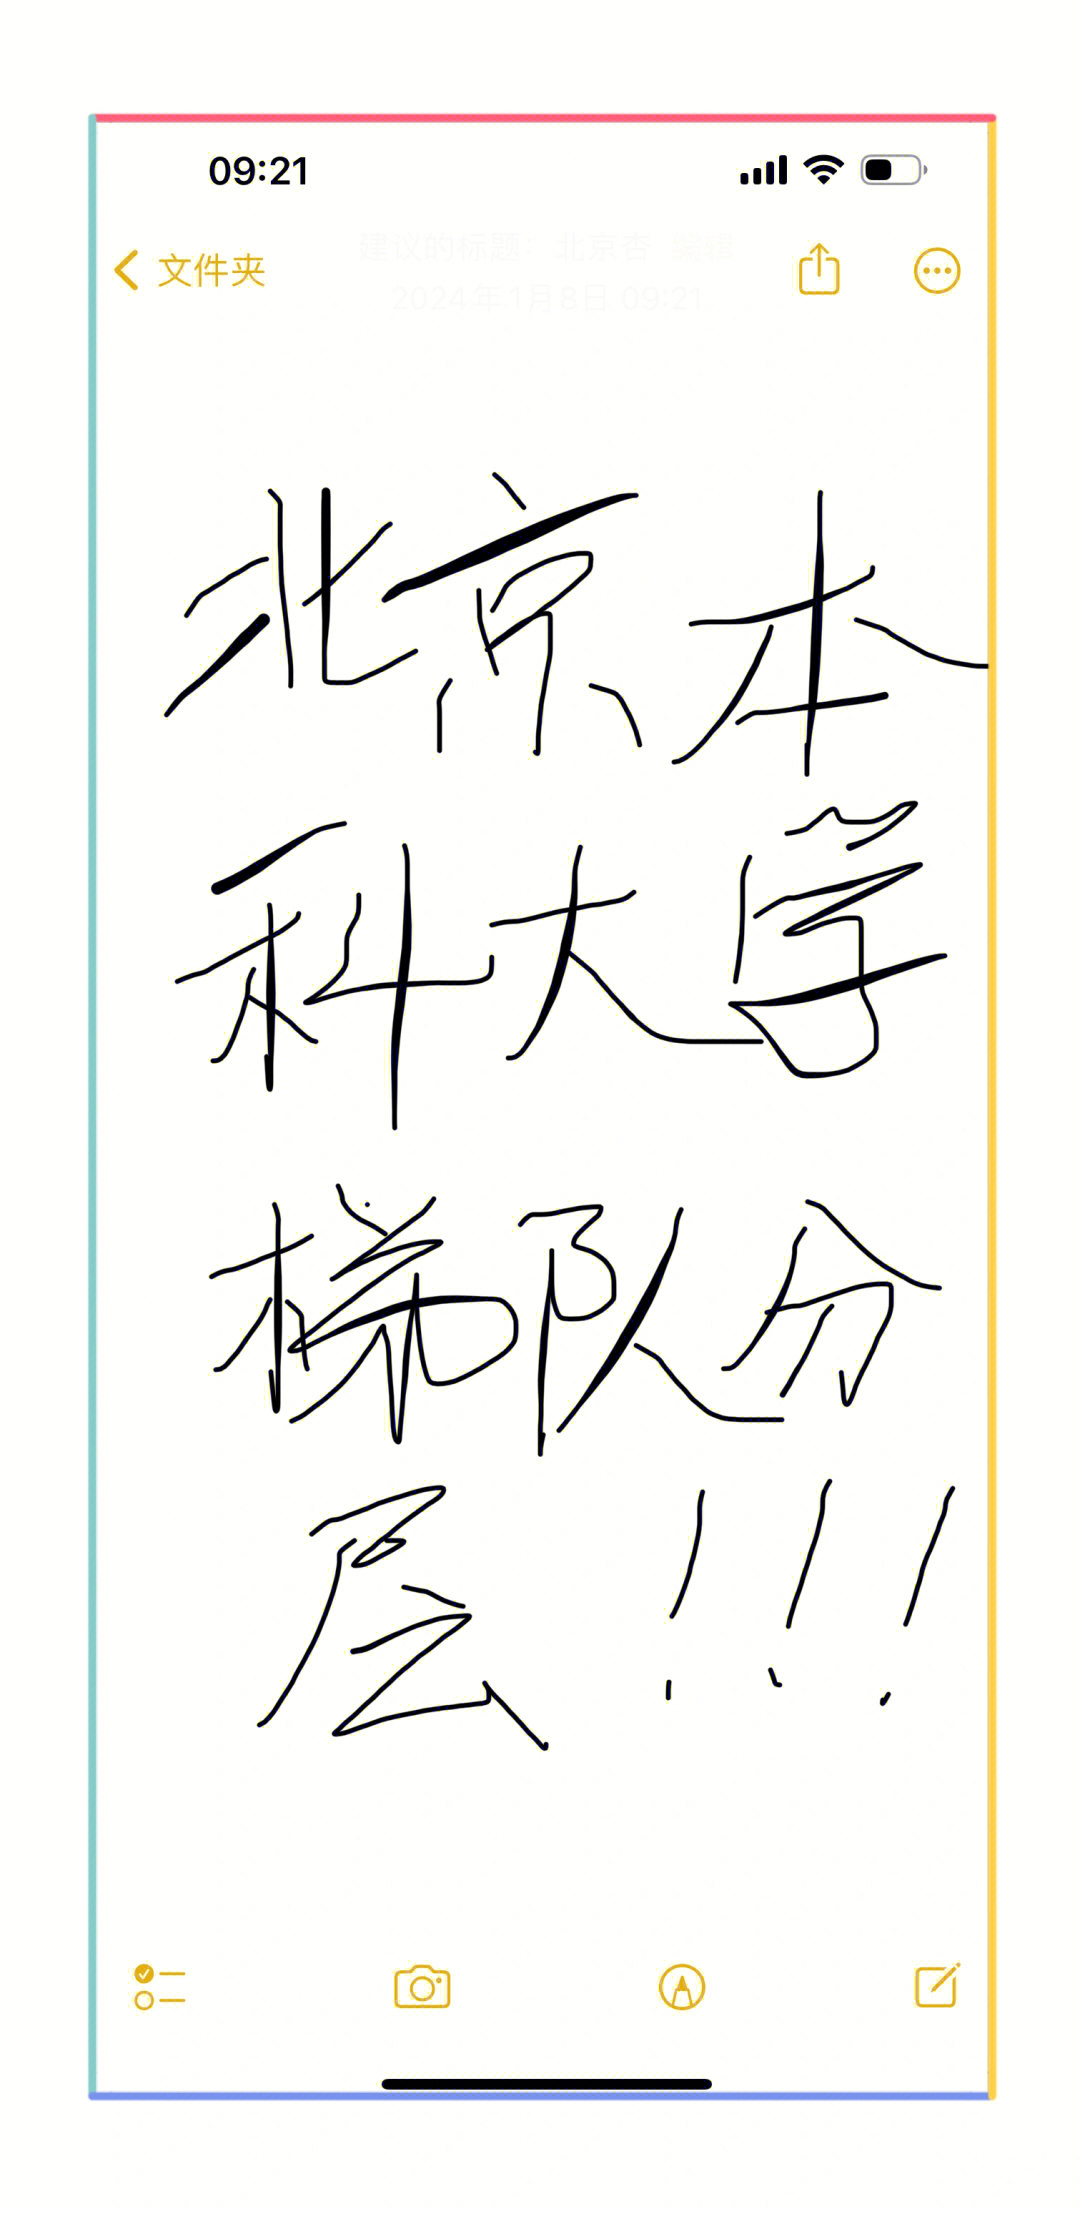 09:21
文件夹
建议的标题：北京杏 编辑
2024年1月8日 09:21
北京本
科大学
梯队分
层！！！